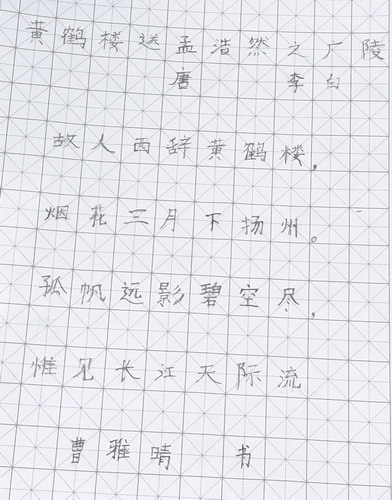 黄鹤楼送孟浩然之广陵
唐 李白
故人西辞黄鹤楼，
烟花三月下扬州。
孤帆远影碧空尽，
惟见长江天际流
曹雅晴 书